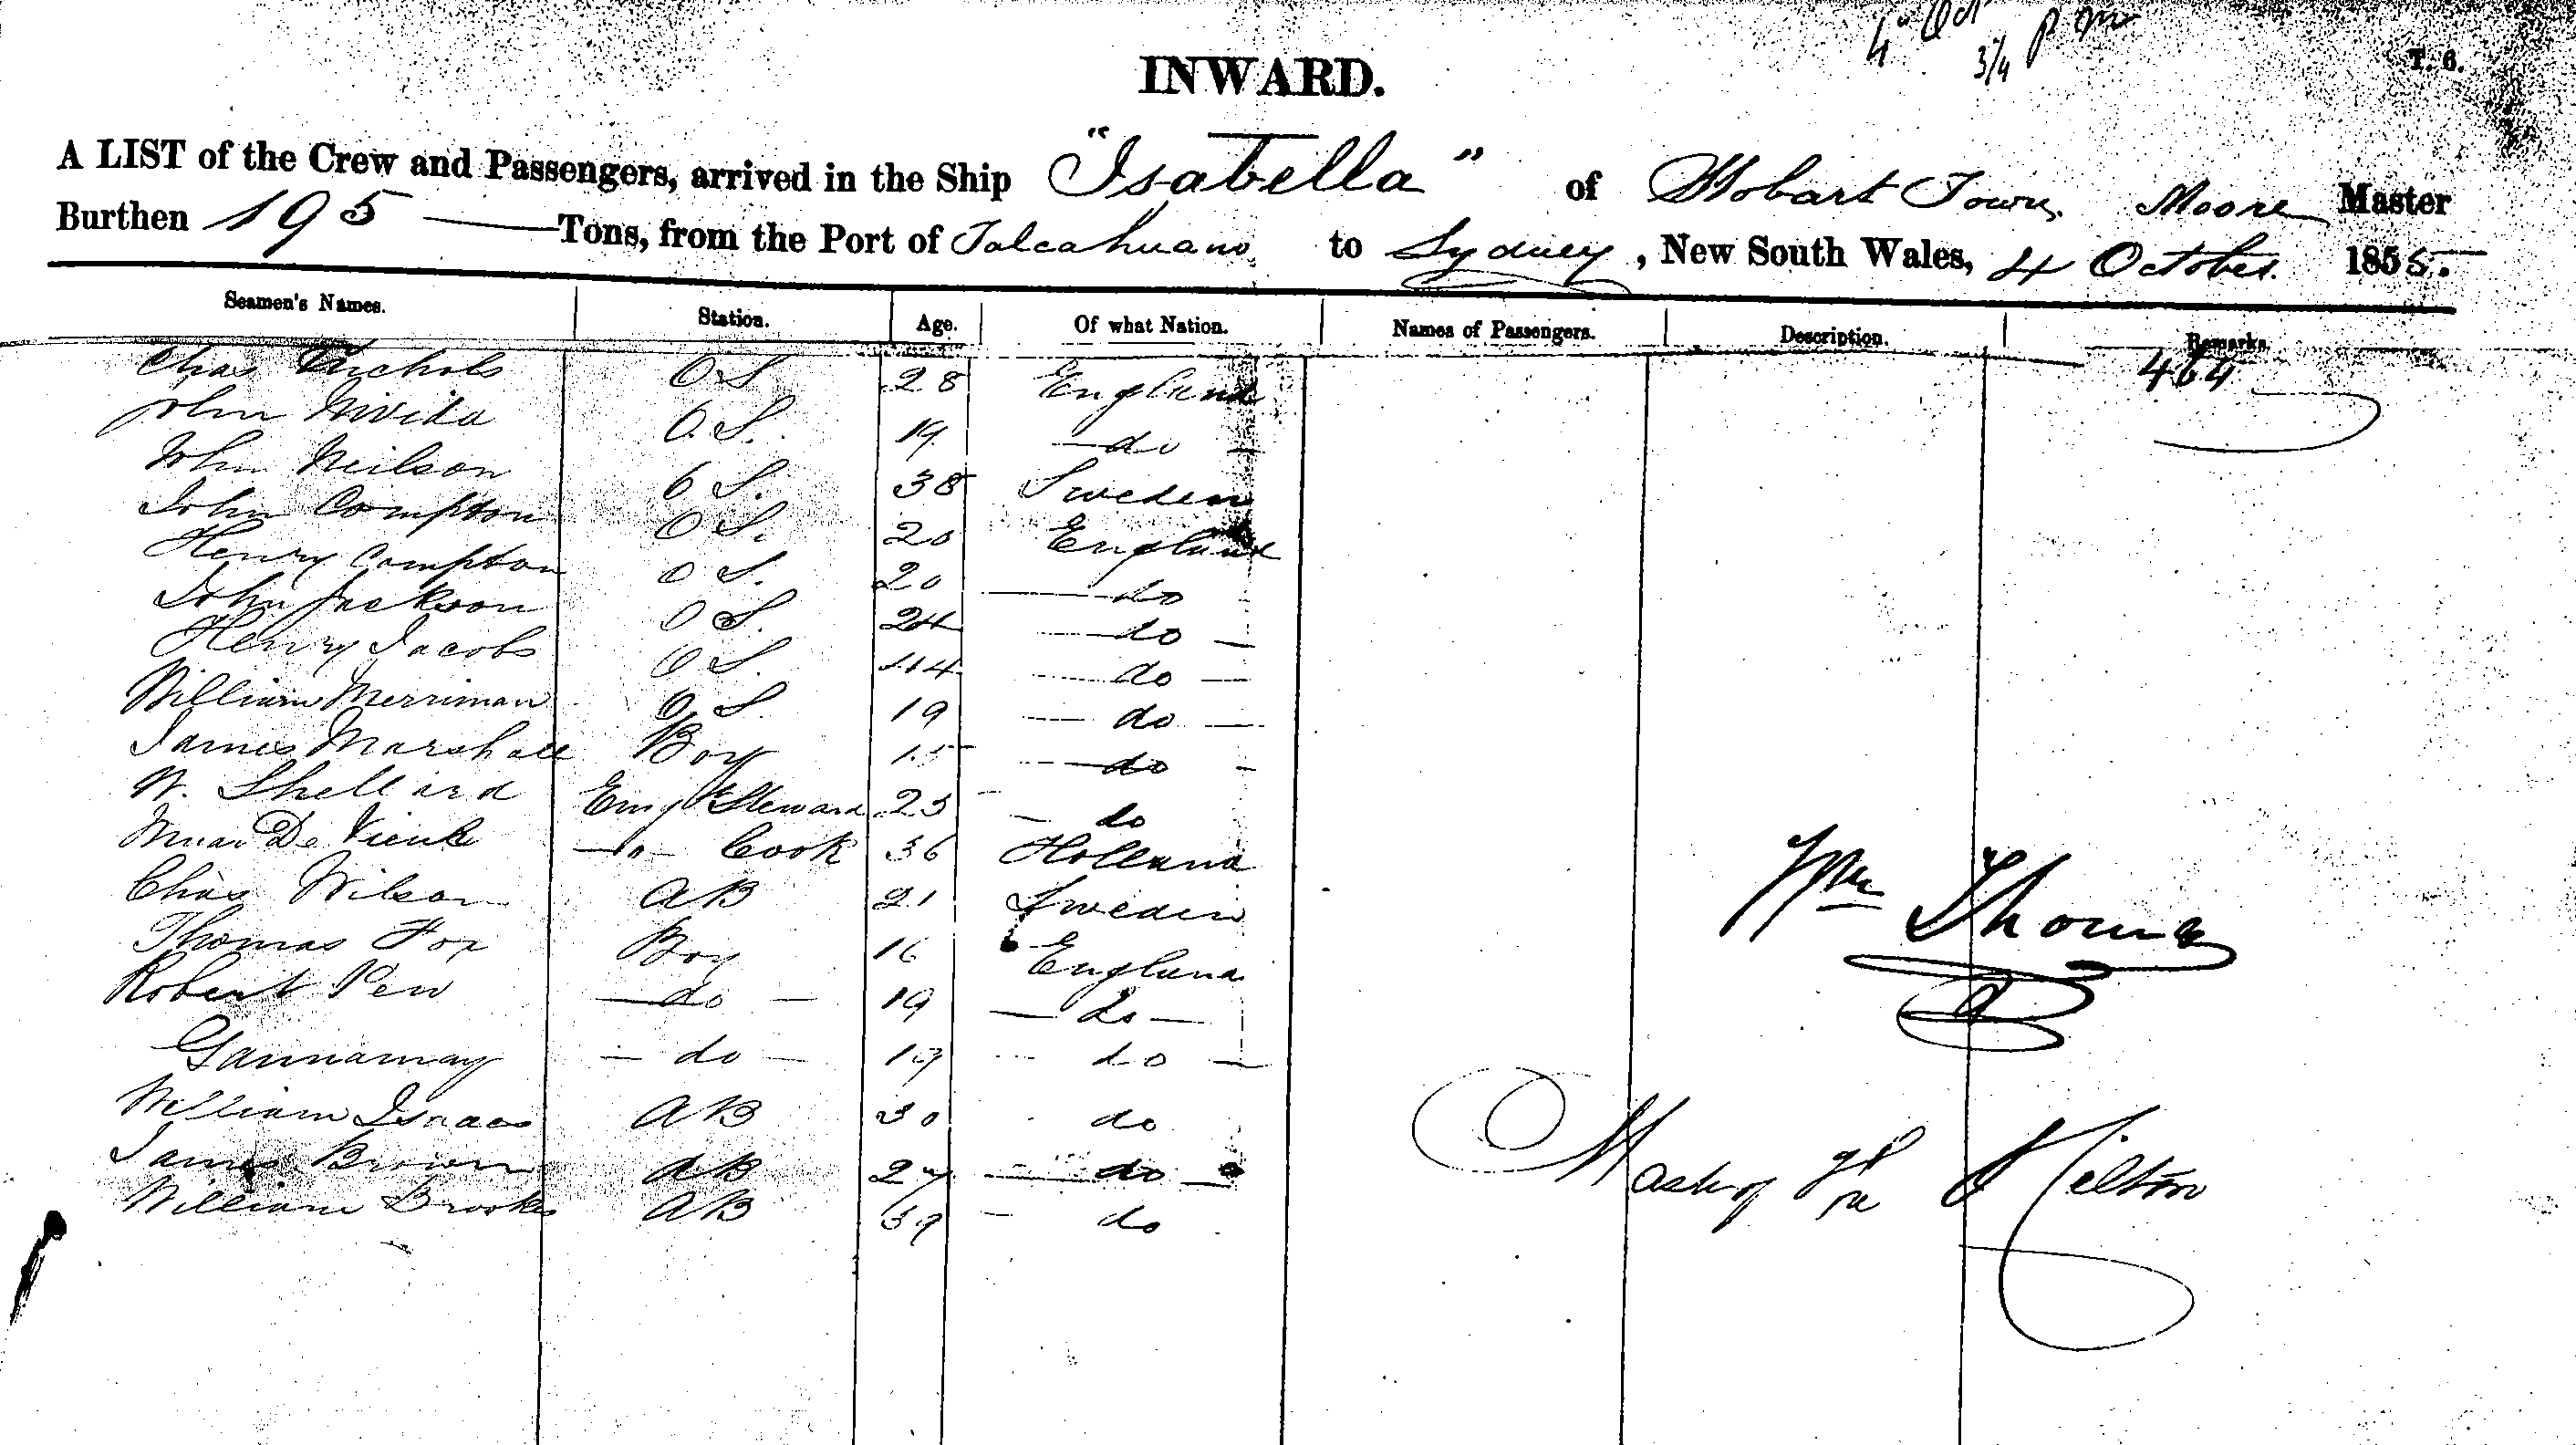 4th Oct
3 1/4 p m
T. 6.
INWARD.
A LIST of the Crew and Passengers, arrived in the Ship "Isabella" of Hobart Town, Moore Master
Burthen 195 Tons, from the Port of Talcahuano to Sydney, New South Wales, 4 October 1855.
Seamen's Names. Station. Age. Of what Nation. Names of Passengers. Description. Remarks.
Chas Nichols O S 28 England 464
John O. S. 19 do
John Neilson O S. 38 Sweden
John Compton O S. 20 England
Henry Compton O S. 20 do
John Jackson O S. 24 do
Henry Jacobs O S. 44 do
William Merriman O S 19 do
James Marshall Boy 15 do
W. Shellard Emgt Steward 25 do
De Cook 36 Holland
Chas Wilson AB 21 Sweden
Thomas Fox Boy 16 England
Robert Pew do 19 do
Gannamay do 19 do
William Isaacs AB 30 do
James Brown AB 27 do
William Brooks AB 39 do
Wm Thomas
Master